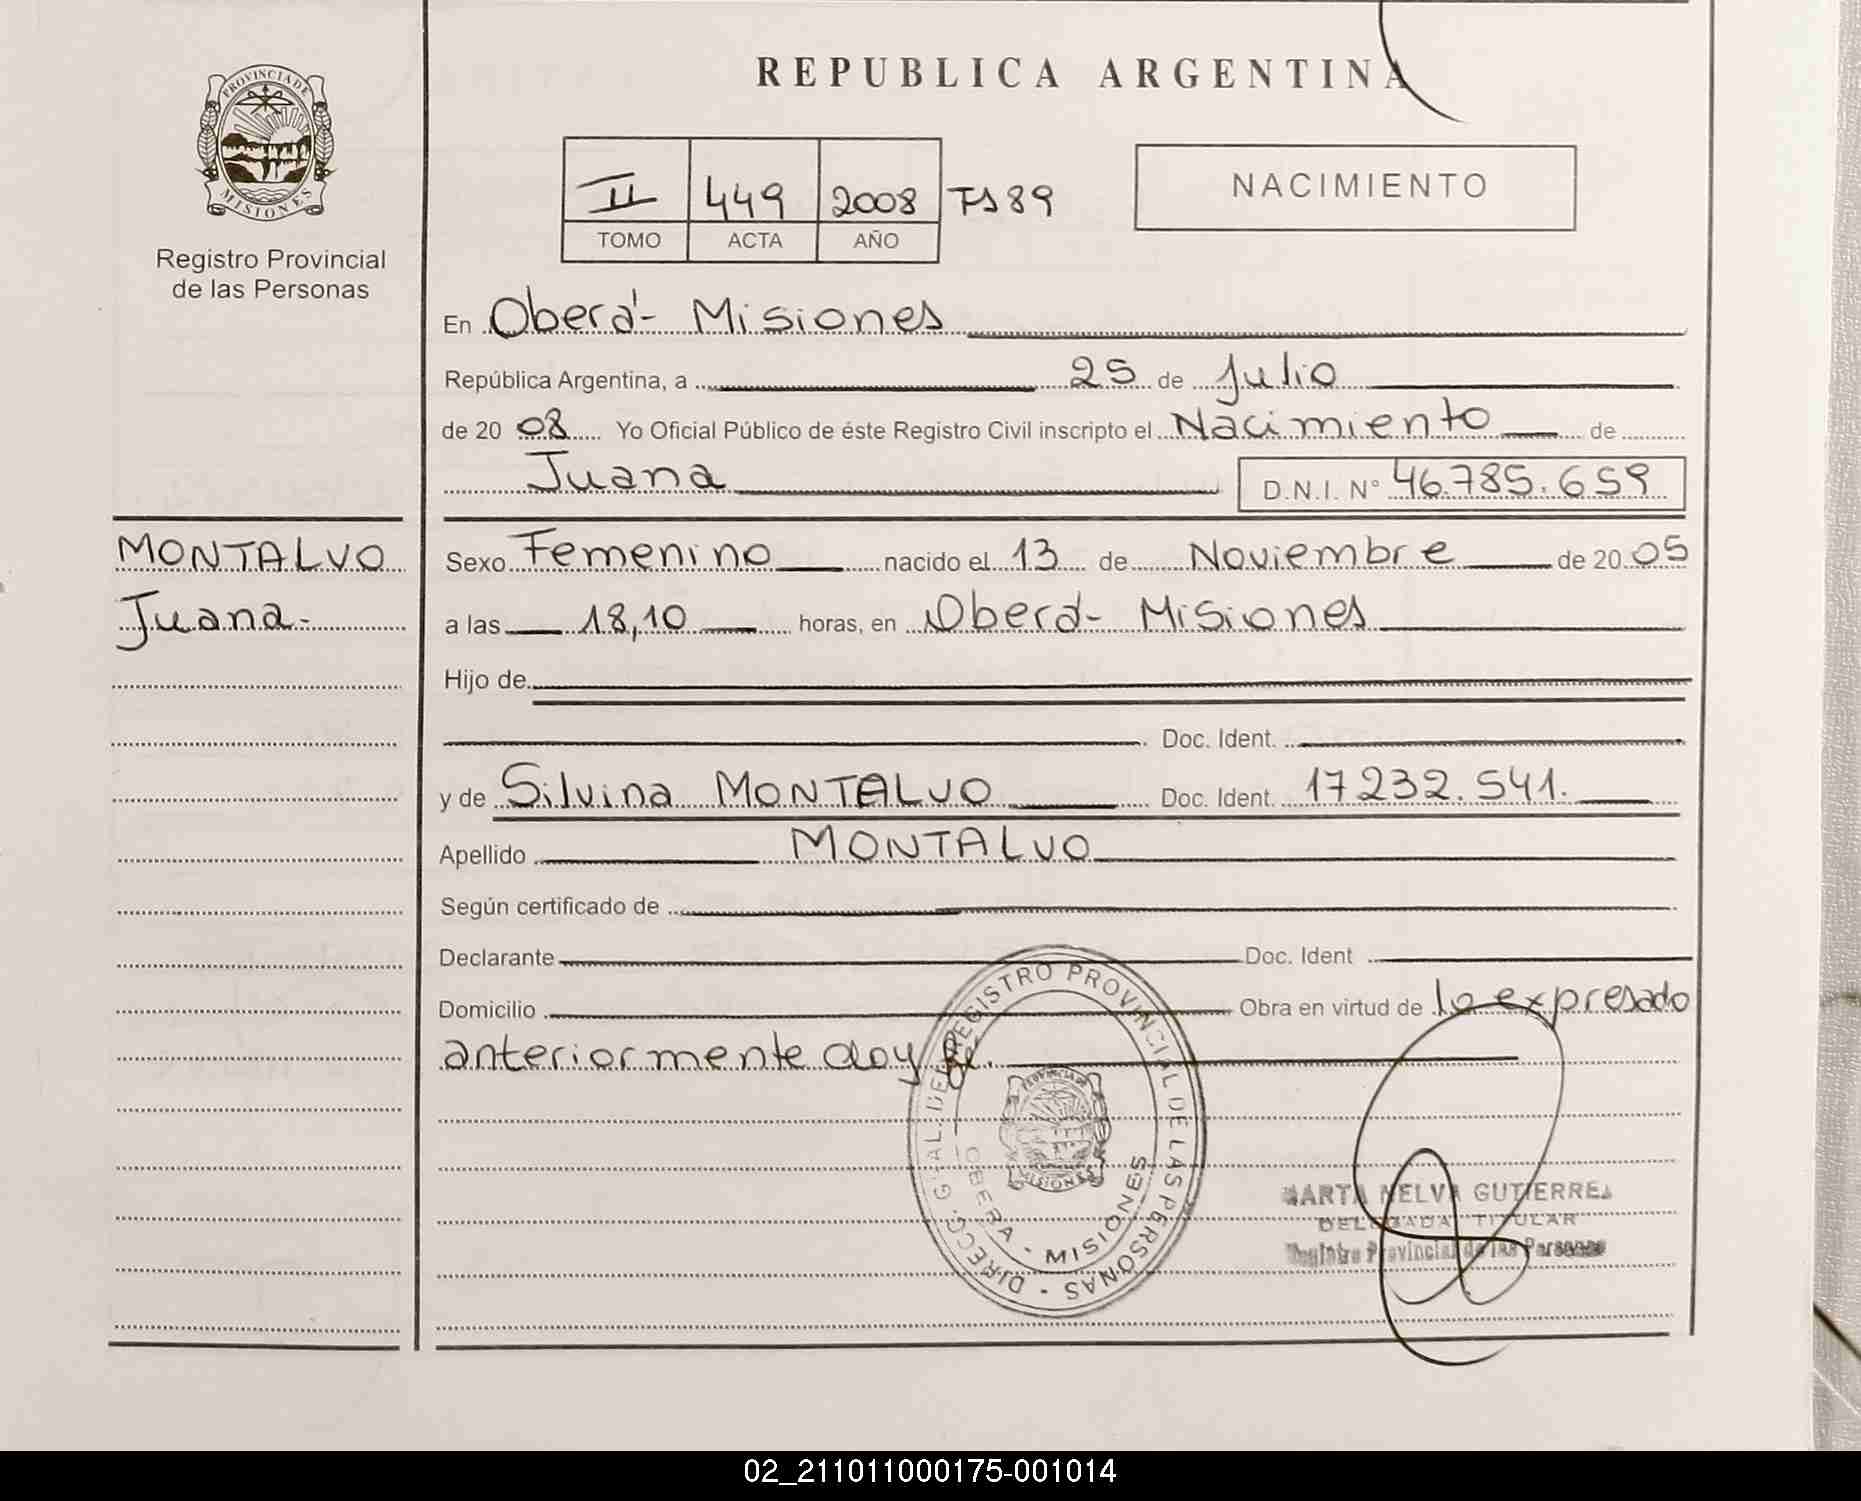 REPUBLICA ARGENTINA
PROVINCIA DE MISIONES
Registro Provincial
de las Personas
II 449 2008 Fs 89
TOMO ACTA AÑO
NACIMIENTO
En Oberá - Misiones
República Argentina, a 25 de Julio
de 20 08 Yo Oficial Público de éste Registro Civil inscripto el Nacimiento de
Juana D.N.I. N° 46.785.659
MONTALVO
Juana-
Sexo Femenino nacido el 13 de Noviembre de 20 05
a las 18,10 horas, en Oberá - Misiones
Hijo de
Doc. Ident.
y de Silvina MONTALVO Doc. Ident. 17232.541.
Apellido MONTALVO
Según certificado de
Declarante Doc. Ident
Domicilio Obra en virtud de lo expresado
anteriormente doy fe.
DIRECC. GRAL. DEL REGISTRO PROVINCIAL DE LAS PERSONAS
OBERA - MISIONES
PROVINCIA DE MISIONES
MARTA NELVA GUTIERREZ
DELEGADA TITULAR
Registro Provincial de las Personas
02_211011000175-001014